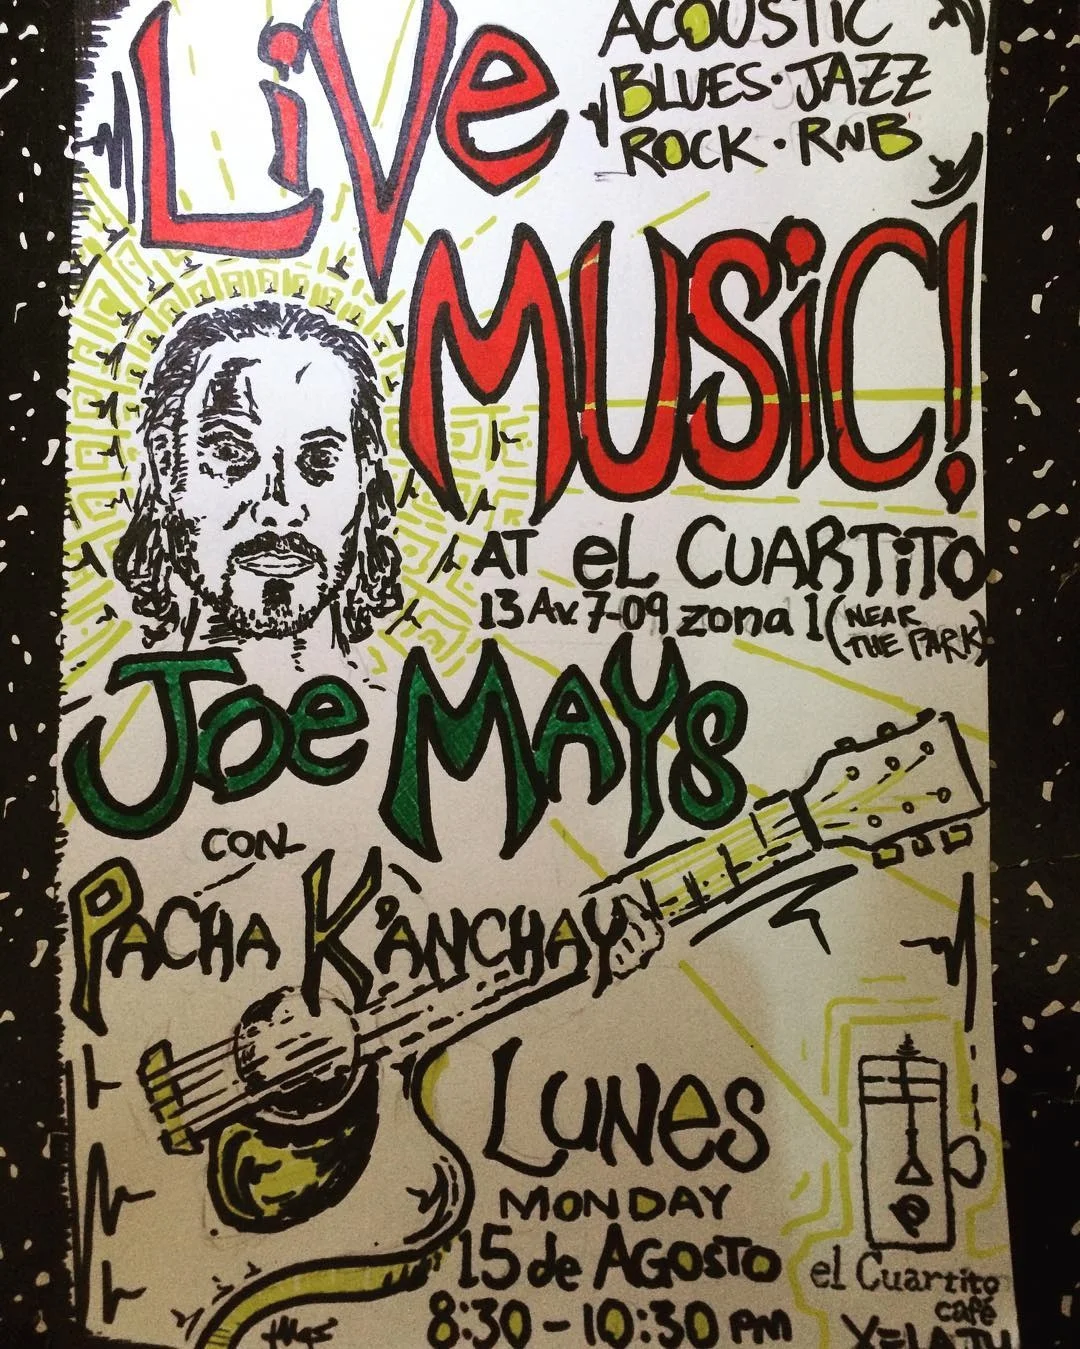 LiVe
ACOUSTIC
BLUES·JAZZ
ROCK·RNB
MUSiC!
AT eL CUARTiTO
13 Av. 7-09 zona 1 (NEAR
THE PARK)
JOe MAYS
CON
PACHA K'ANCHAY
LUNeS
MONDAY
15 de AGOSTO
8:30-10:30 PM
el Cuartito
café